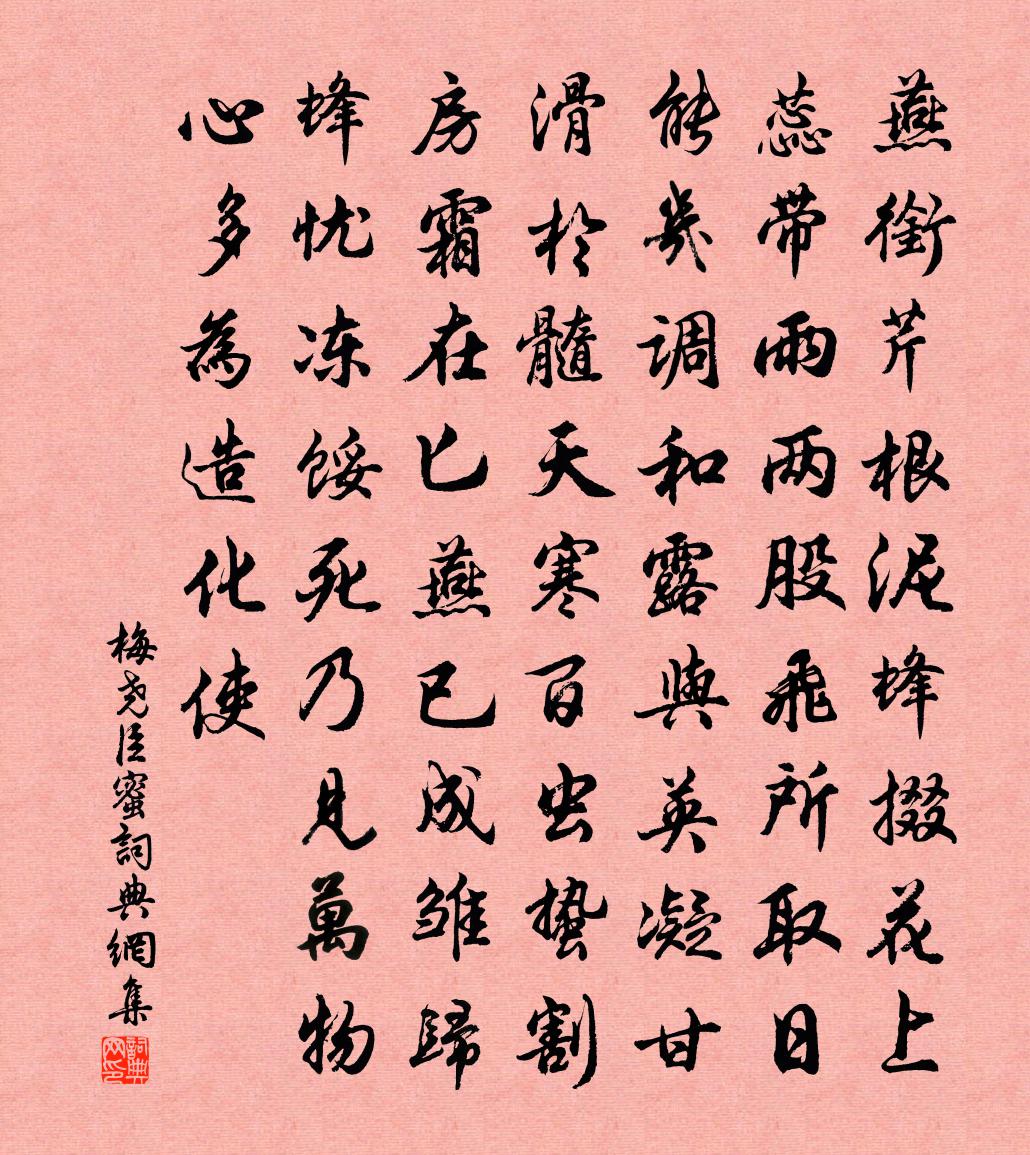 燕銜芹根泥蜂掇花上
蕊带雨两股飛所取日
能幾调和露與英凝甘
滑於髓天寒百虫蛰割
房霜在匕燕已成雏歸
蜂忧冻馁死乃見萬物
心多為造化使
梅尧臣蜜詞典網集
詞典网印